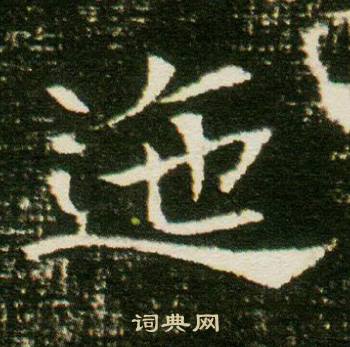 迤
词典网